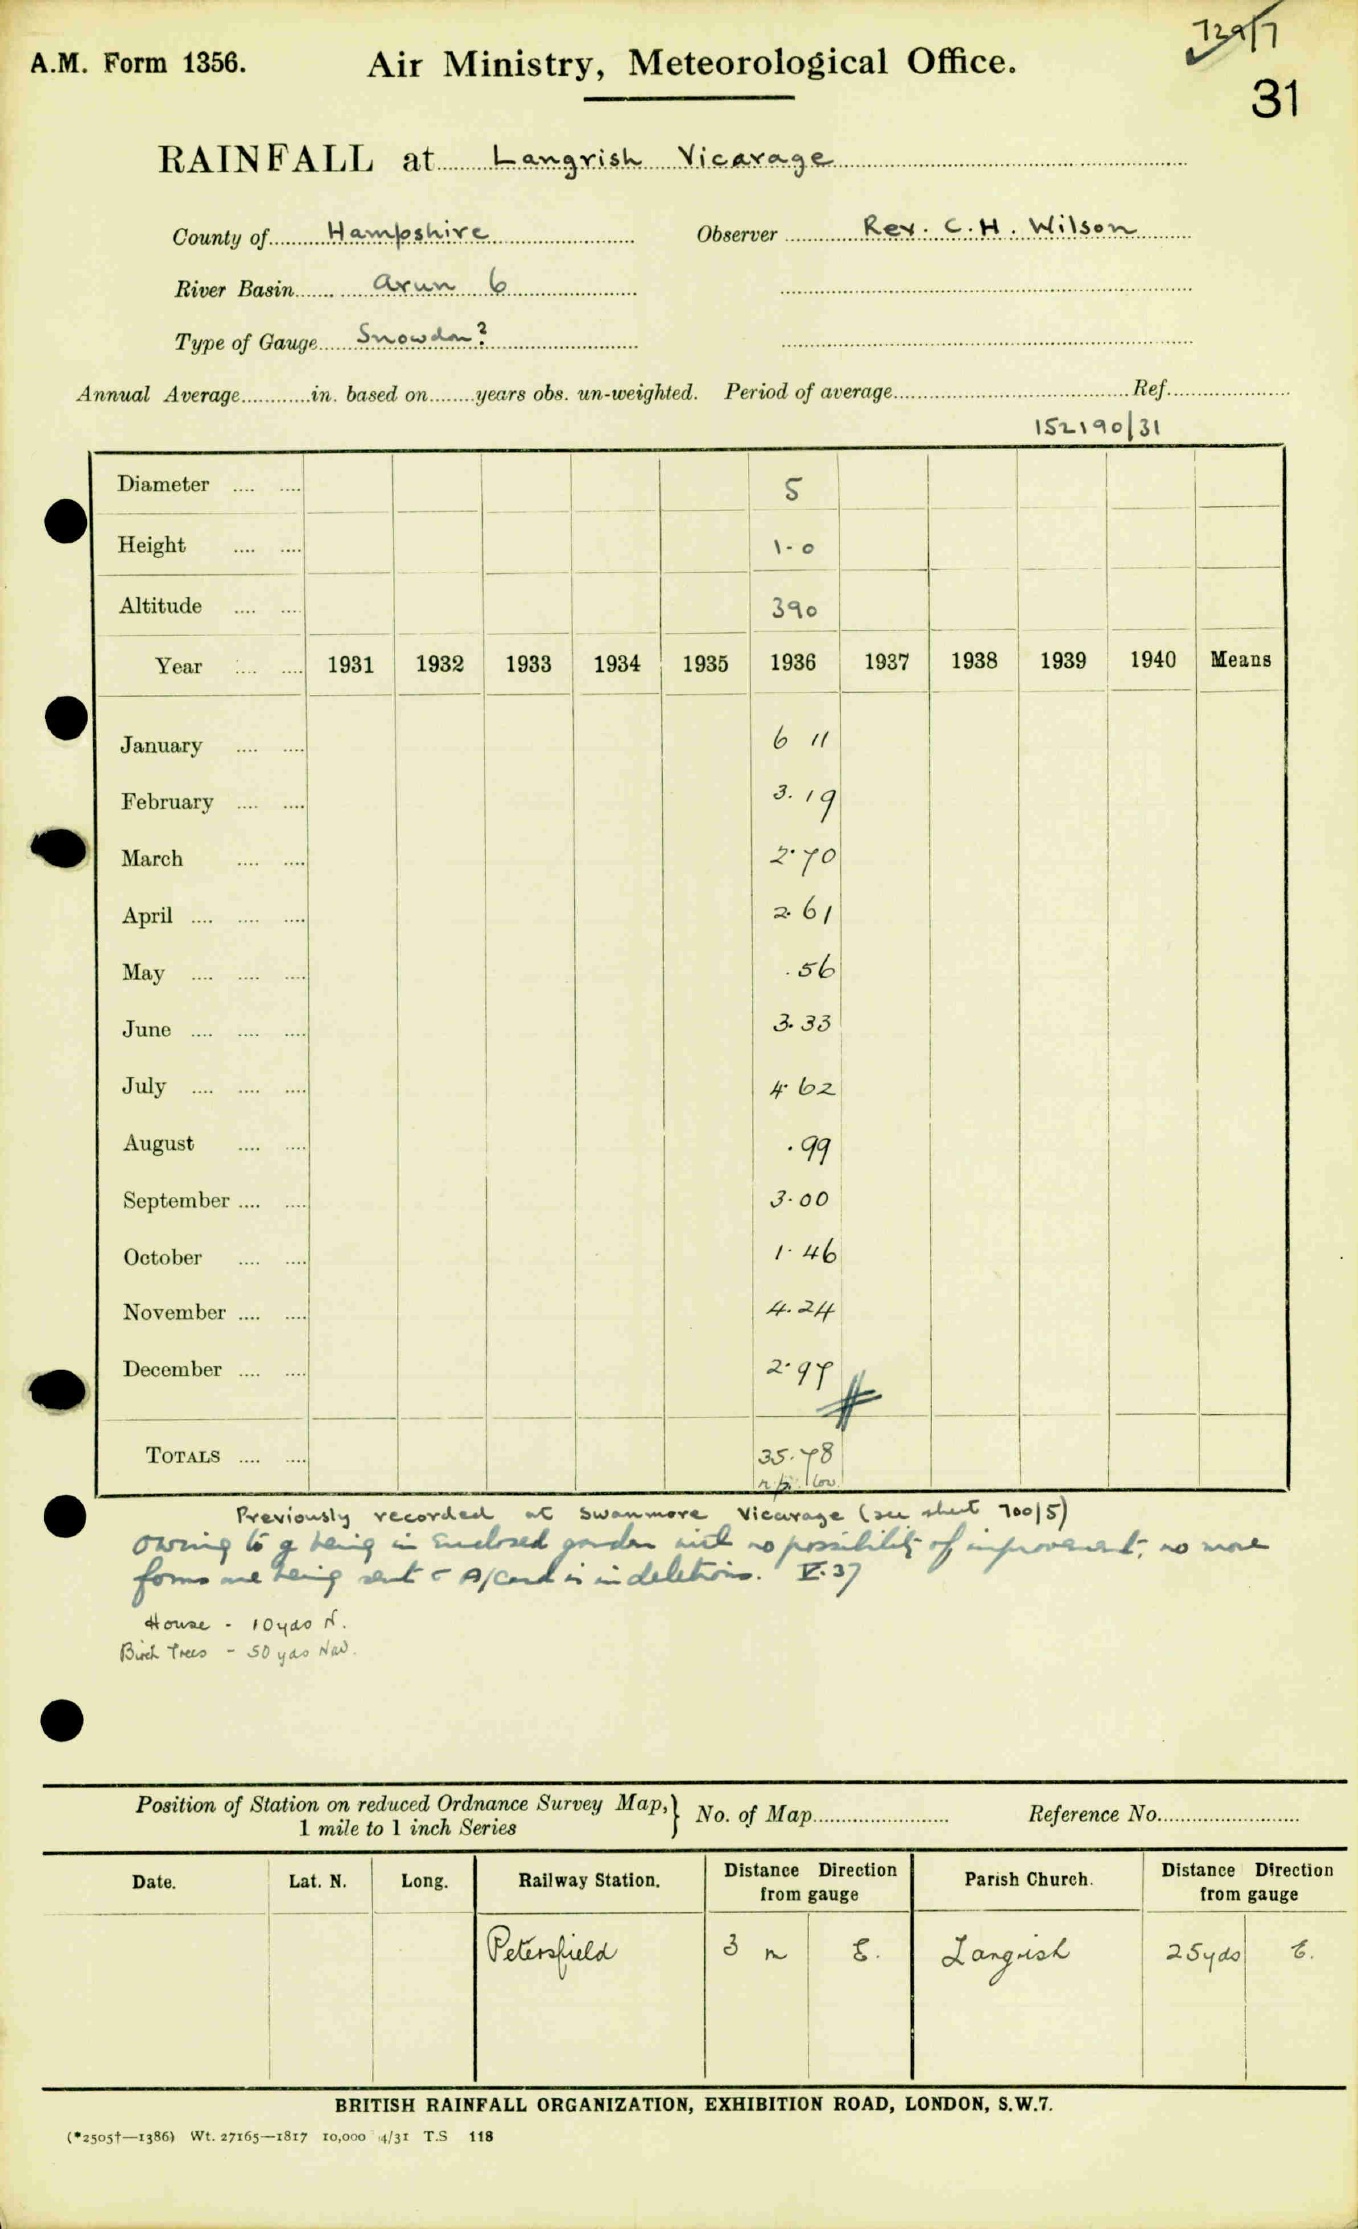 729/7
A.M. Form 1356. Air Ministry, Meteorological Office.
31
RAINFALL at Langrish Vicarage
County of Hampshire Observer Rev. C. H. Wilson
River Basin Arun 6
Type of Gauge Snowdon?
Annual Average in. based on years obs. un-weighted. Period of average Ref.
152190/31
Diameter 5
Height 1-0
Altitude 390
Year 1931 1932 1933 1934 1935 1936 1937 1938 1939 1940 Means
January 6 11
February 3.19
March 2.70
April 2.61
May .56
June 3.33
July 4 62
August .99
September 3.00
October 1.46
November 4.24
December 2.97
TOTALS 35.78
Previously recorded at Swanmore Vicarage (see sheet 700/5)
Owing to g being in Enclosed garden with no possibility of improvement, no more
forms are being sent A/Card is in deletions. V.37
House - 10 yds N.
Birch Trees - 50 yds NW.
Position of Station on reduced Ordnance Survey Map, } No. of Map Reference No.
1 mile to 1 inch Series
Date. Lat. N. Long. Railway Station. Distance Direction from gauge Parish Church. Distance Direction from gauge
Petersfield 3 m E. Langrish 25yds E.
BRITISH RAINFALL ORGANIZATION, EXHIBITION ROAD, LONDON, S.W.7.
(*2505†—1386) Wt. 27165—1817 10,000 4/31 T.S 118